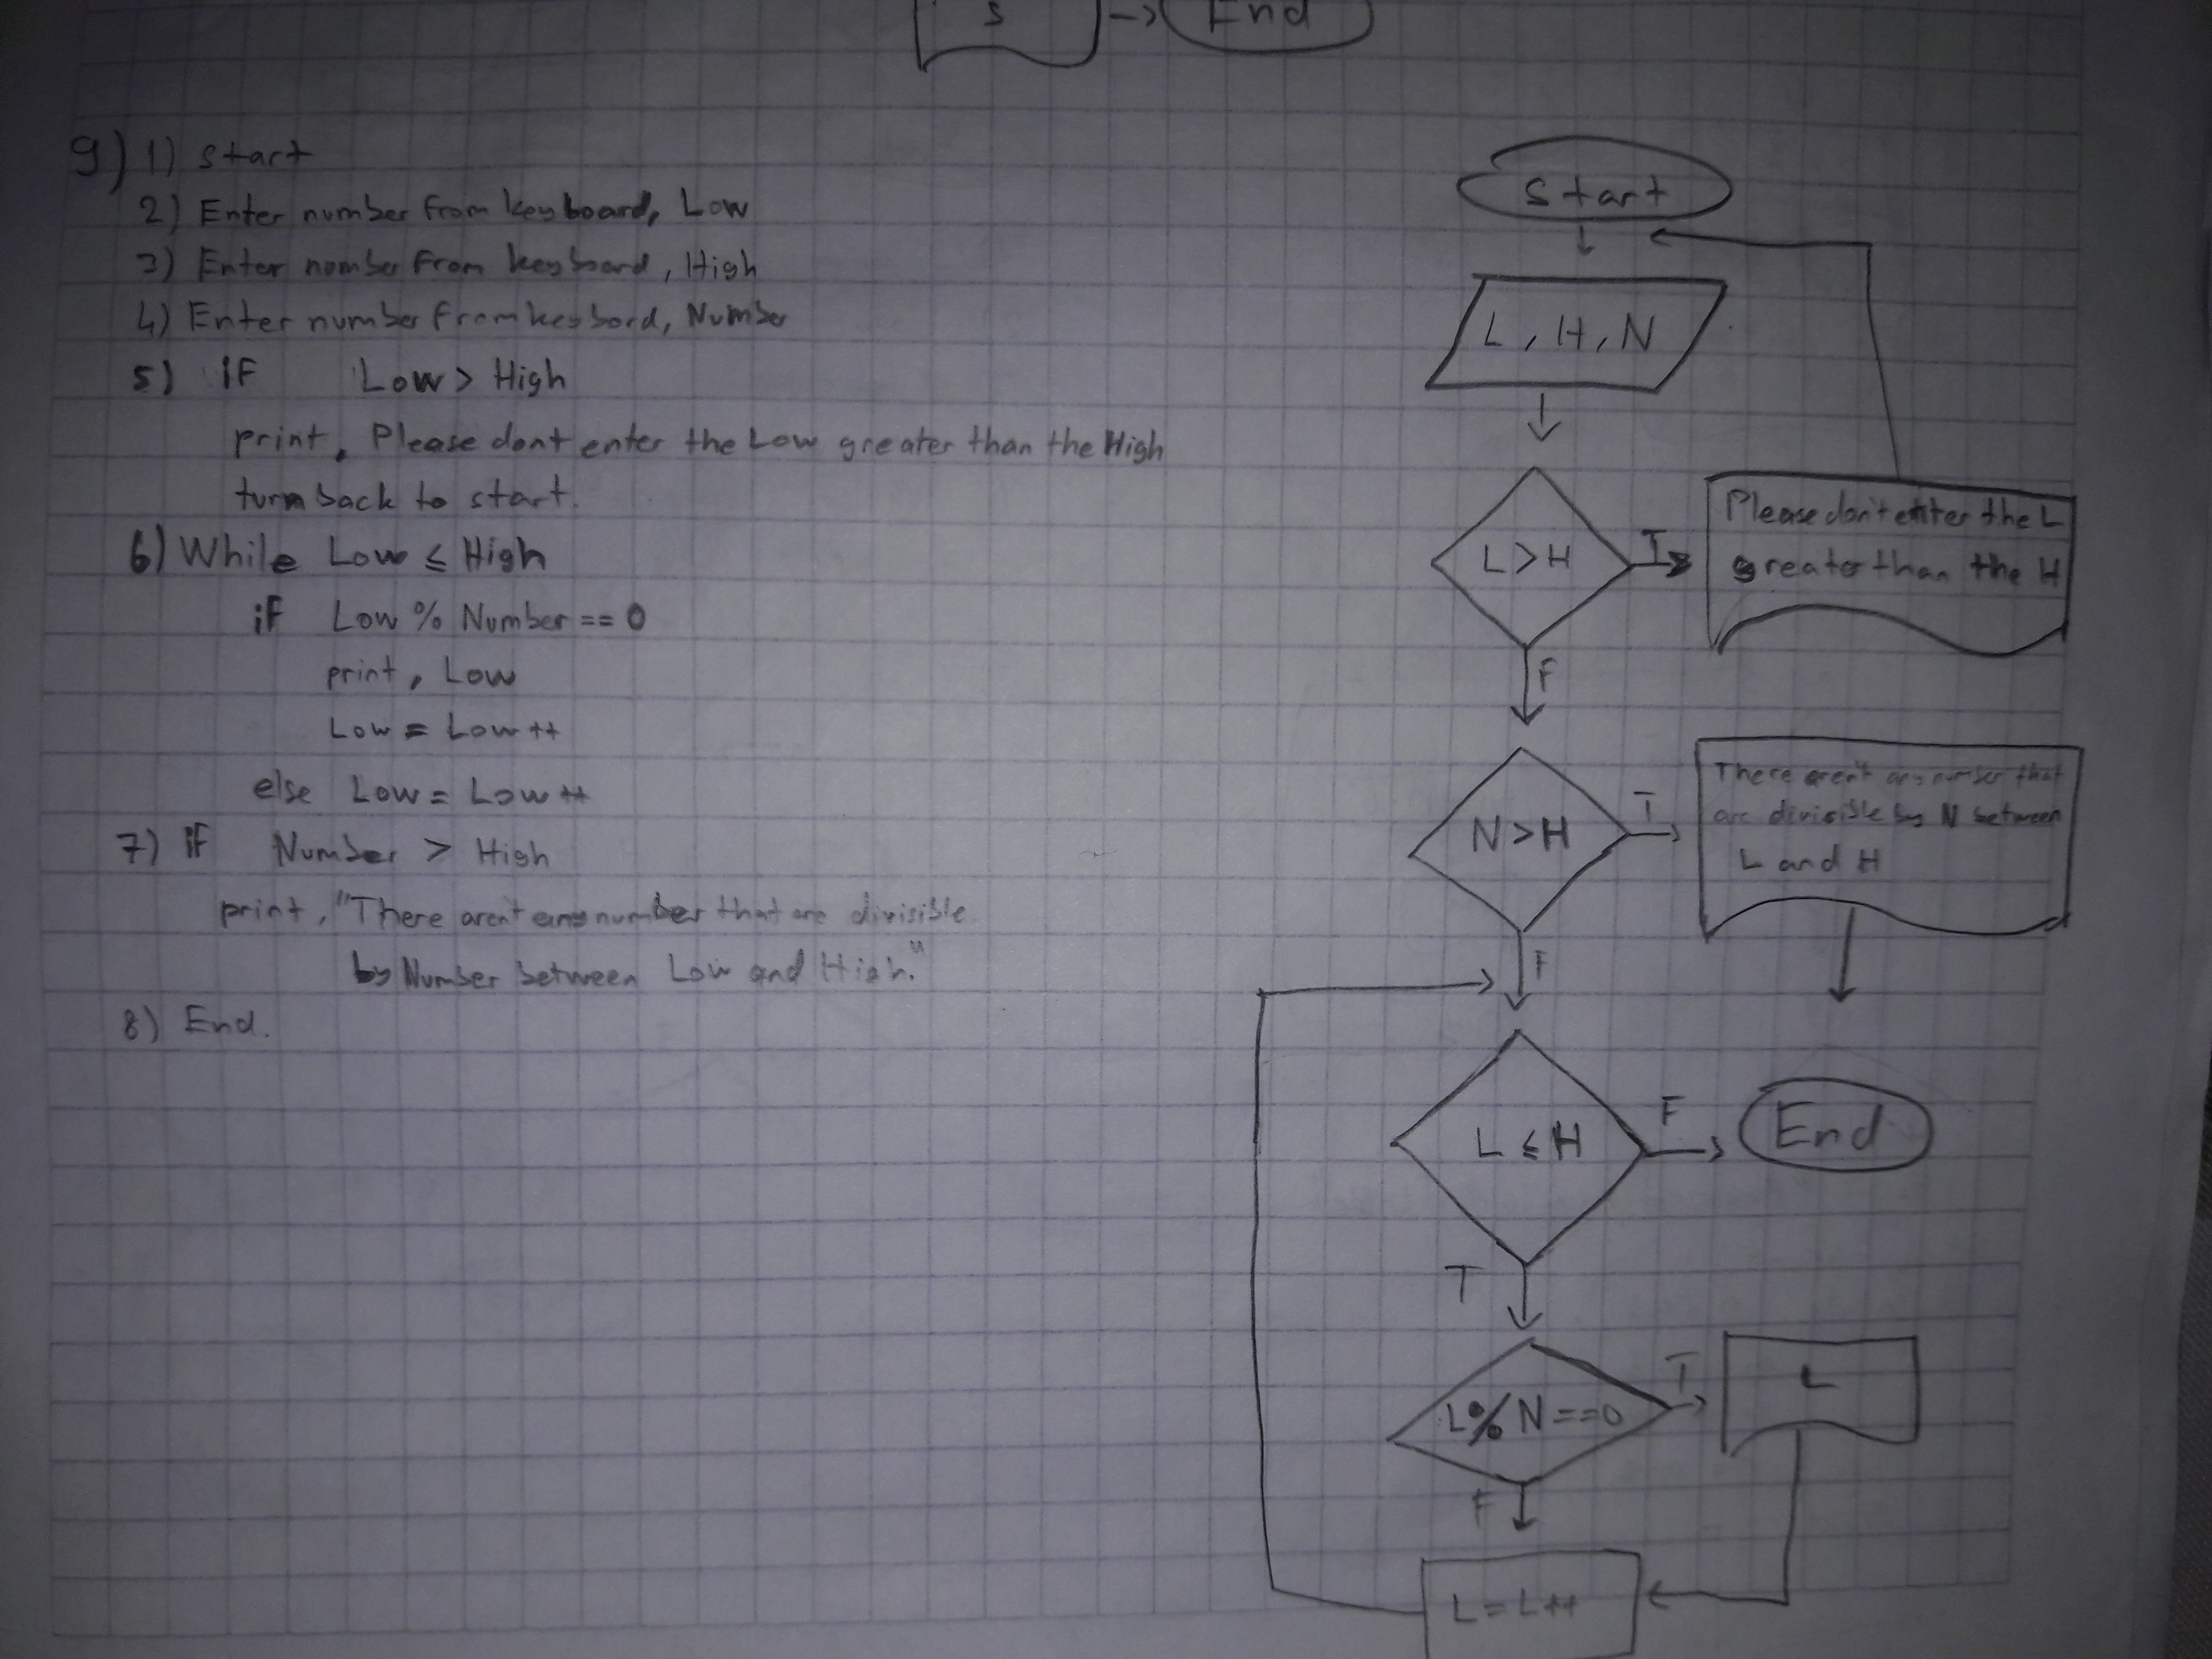 s
End
9) 1) start
2) Enter number from keyboard, Low
3) Enter nomber from keyboard, High
4) Enter number from keybord, Number
5) if Low > High
print, Please dont enter the Low greater than the High
turn back to start.
6) While Low ≤ High
if Low % Number == 0
print, Low
Low = Low ++
else Low = Low ++
7) if Number > High
print, "There aren't any number that are divisible
by Number between Low and High."
8) End.
Start
L, H, N
L > H
T
Please don't enter the L
greater than the H
F
N > H
T
There aren't any number that
are divisible by N between
L and H
F
L ≤ H
F
End
T
L % N == 0
T
L
F
L = L ++